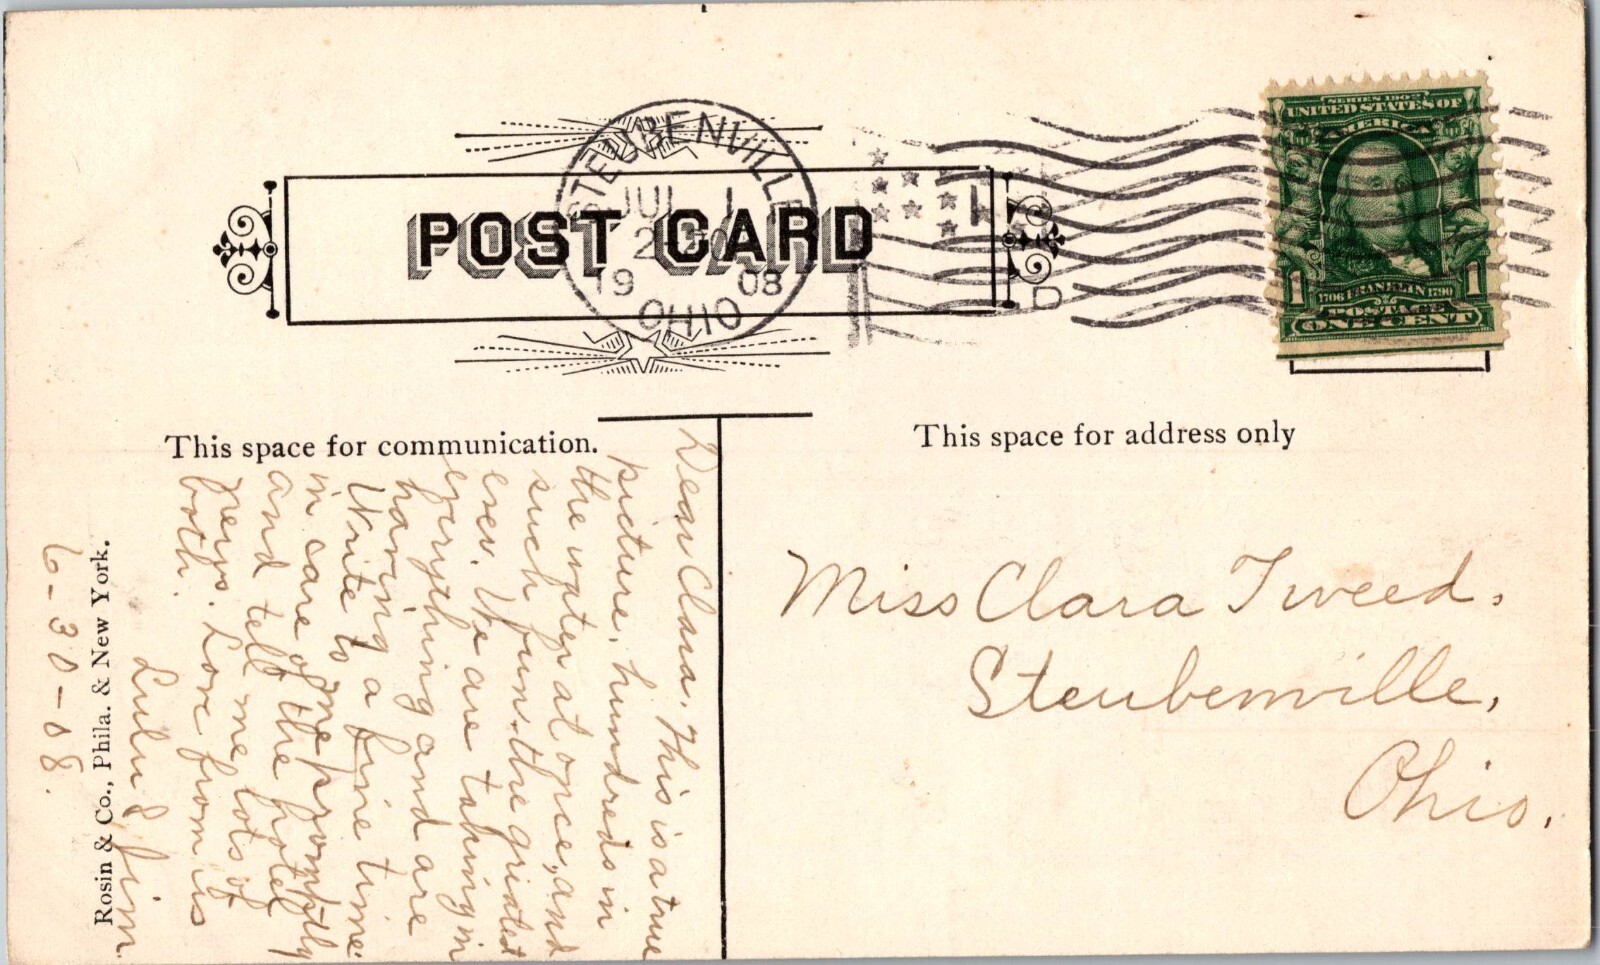 STEUBENVILLE
JUL 1
19 08
OHIO
POST CARD
1
D
SERIES 1902
UNITED STATES OF
AMERICA
1 1706 FRANKLIN 1790 1
POSTAGE
ONE CENT
This space for communication.
This space for address only
Dear Clara, This is a true
picture, hundreds in
the water at once, and
such fun - the griatest
ever. We are taking in
everything and are
having a fine time.
Write to me promptly
in care of the hotel
and tell me lots of
news. Love from us
both.
Lulu & Jim
6-30-08.
Rosin & Co., Phila. & New York.
Miss Clara Tweed,
Steubenville,
Ohio.